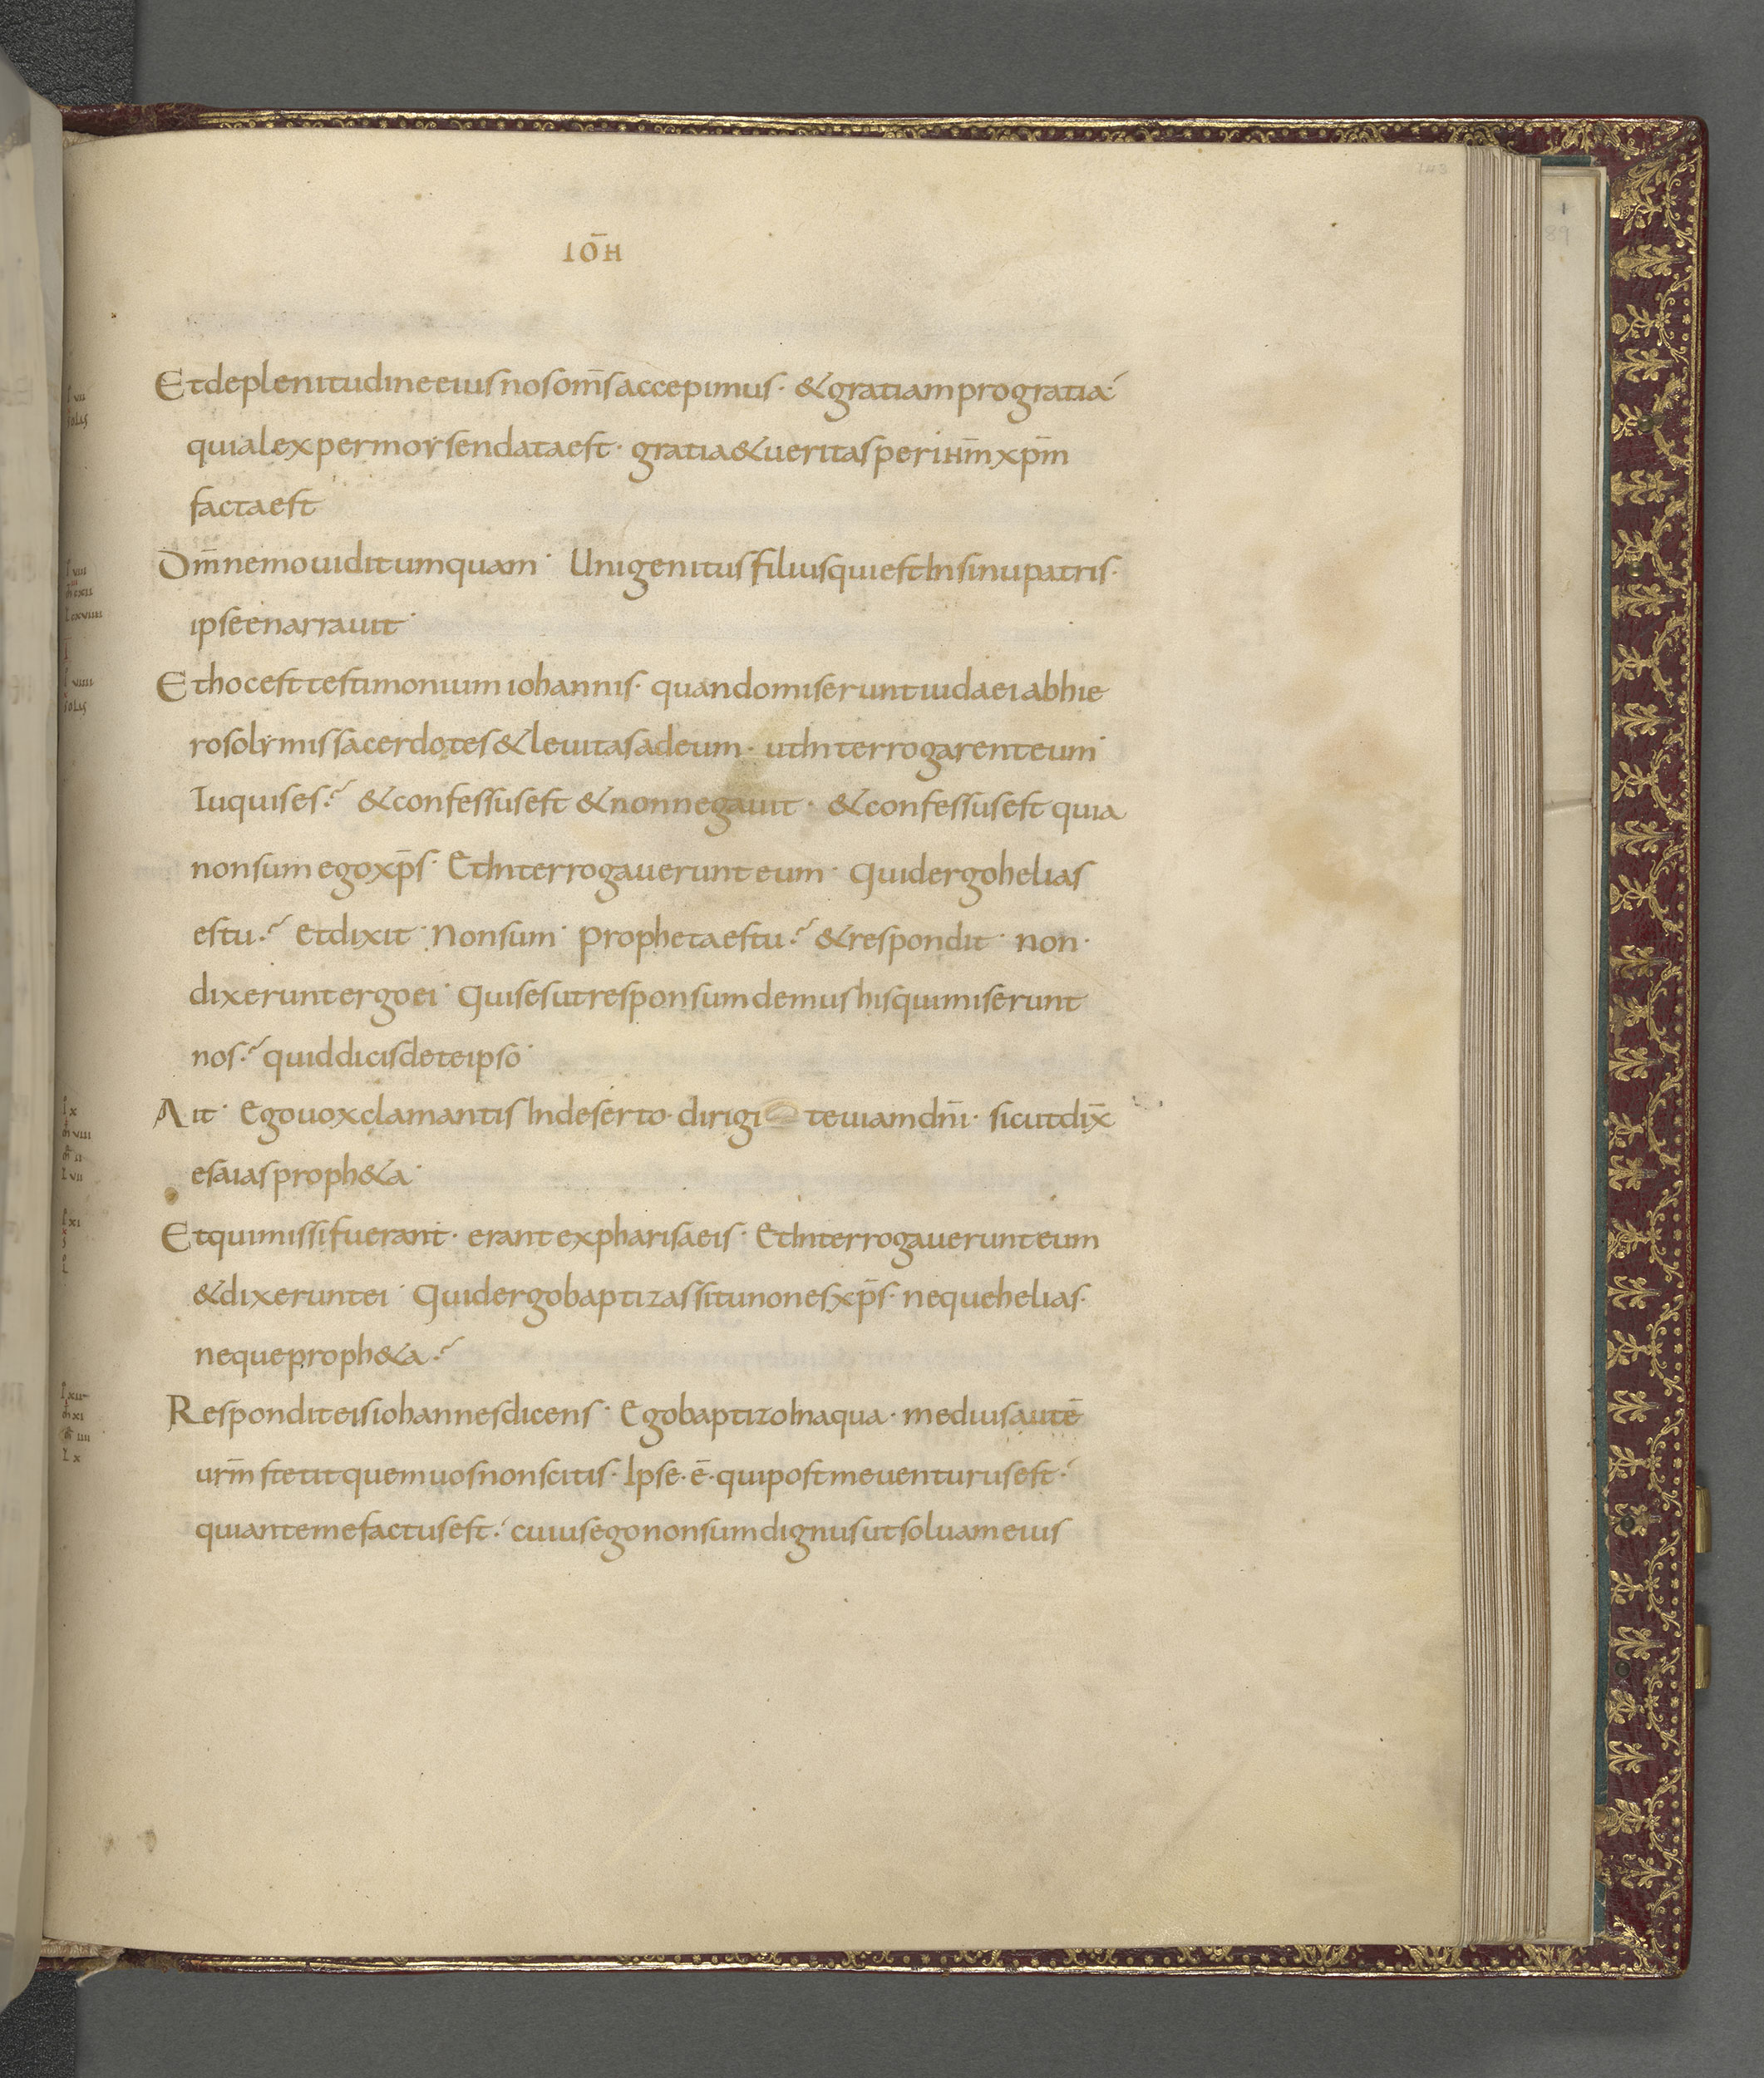 143
IOH̄
Et de plenitudine eius nos om̄s accepimus · & gratiam pro gratia·
quia lex per moysen data est · gratia & ueritas per ihm̄ xpm̄
facta est
Dm̄ nemo uidit umquam · Unigenitus filius qui est In sinu patris ·
ipse enarrauit ·
Et hoc est testimonium iohannis · quando miserunt iudaei ab hie
rosolymis sacerdotes & leuitas ad eum · ut Interrogarent eum ·
Tu quis es ? & confessus est & non negauit · & confessus est quia
non sum ego xp̄s · Et Interrogauerunt eum · Quid ergo helias
es tu ? Et dixit · Non sum · propheta es tu ? & respondit · non ·
dixerunt ergo ei · Quis es ut responsum demus his qui miserunt
nos ? quid dicis de te ipso ·
Ait · Ego uox clamantis In deserto · dirigi te uiam dn̄i · sicut dix̄
esaias proph&a ·
Et qui missi fuerant · erant ex pharisaeis · Et Interrogauerunt eum
& dixerunt ei · Quid ergo baptizas si tu non es xp̄s · neque helias ·
neque proph&a ?
Respondit eis iohannes dicens · Ego baptizo In aqua · medius autē
urm̄ stetit quem uos non scitis · Ipse · ē · qui post me uenturus est ·
qui ante me factus est · cuius ego non sum dignus ut soluam eius